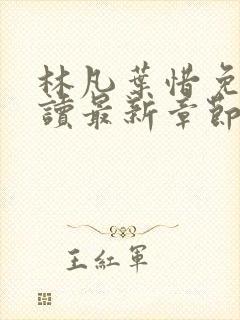 林凡葉惜免
讀最新章節
王紅軍